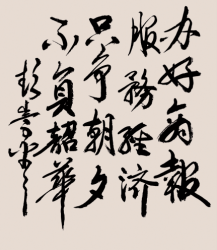 办好商報
服務經济
只争朝夕
不負韶華
彭